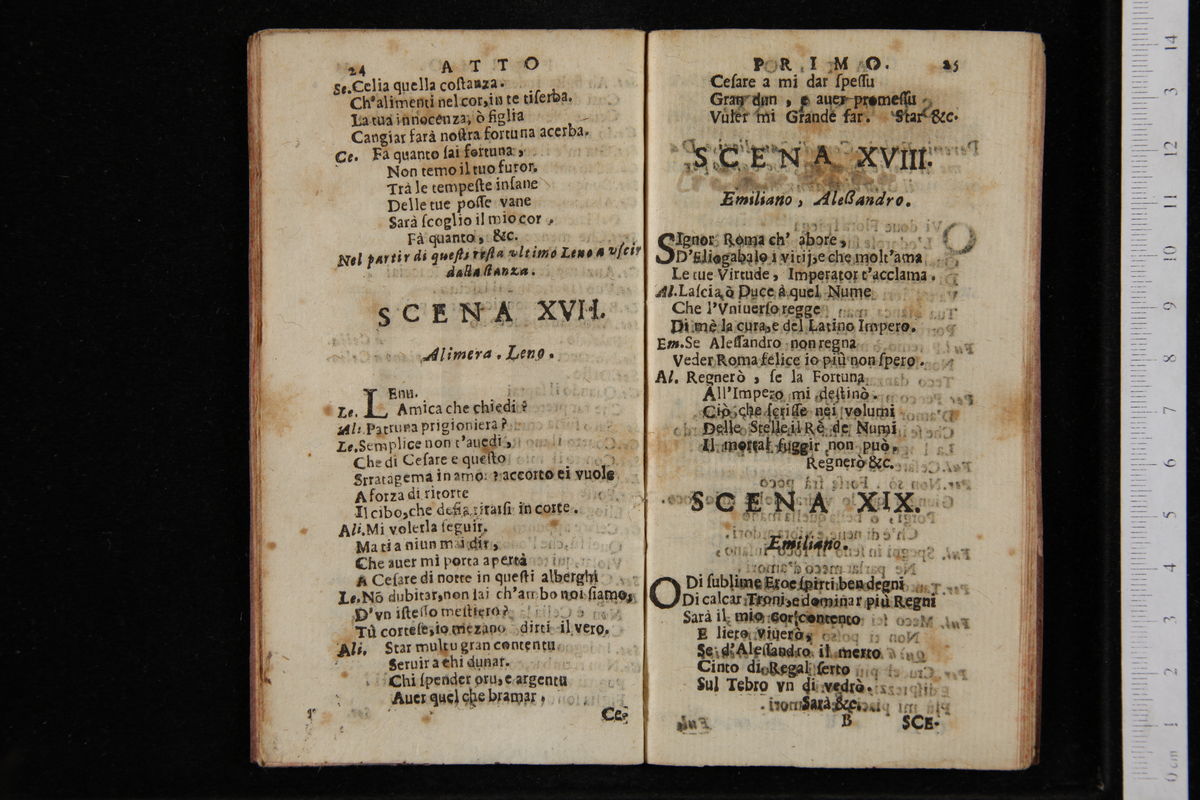 24 ATTO
Se. Celia quella costanza.
Ch'alimenti nel cor, in te riserba.
La tua innocenza, ò figlia
Cangiar farà nostra fortuna acerba.
Ce. Fà quanto sai fortuna,
Non temo il tuo furor.
Trà le tempeste insane
Delle tue posse vane
Sarà scoglio il mio cor,
Fà quanto, &c.
Nel partir di questi resta vltimo Leno a vscir
dalla stanza.
SCENA XVII.
Alimera. Leno.
LEnu.
Le. Amica che chiedi?
Ali. Patruna prigioniera?
Le. Semplice non t'auedi,
Che di Cesare e questo
Srratagema in amo: ? accorto ei vuole
A forza di ritorte
Il cibo, che desia tirarsi in corte.
Ali. Mi volerla seguir.
Ma ti a niun mai dir,
Che auer mi porta aperta
A Cesare di notte in questi alberghi
Le. Nõ dubitar, non sai ch'ambo noi siamo,
D'vn istesso mestiero?
Tù cortese, io mezano dirti il vero.
Ali. Star multu gran contentu
Seruir a chi dunar.
Chi spender oru, e argentu
Auer quel che bramar.
Ce-
PRIMO. 25
Cesare a mi dar spessu
Gran dun, e auer promessu
Vuler mi Grande far. Star &c.
SCENA XVIII.
Emiliano, Alessandro.
SIgnor Roma ch' abore,
D'Eliogabalo i vitij, e che molt'ama
Le tue Virtude, Imperator t'acclama.
Al. Lascia, ò Duce à quel Nume
Che l'Vniuerso regge
Di mè la cura, e del Latino Impero.
Em. Se Alessandro non regna
Veder Roma felice io più non spero.
Al. Regnerò, se la Fortuna
All'Impero mi destinò.
Ciò, che scrisse nei volumi
Delle Stelle il Rè de Numi
Il mortal fuggir non può.
Regnerò &c.
SCENA XIX.
Emiliano.
ODi sublime Eroe spirti ben degni
Di calcar Troni, e dominar più Regni
Sarà il mio cor contento
E lieto viuerò,
Se d'Alessandro il merto
Cinto di Regal serto
Sul Tebro vn di vedrò.
Sarà &c.
B SCE-